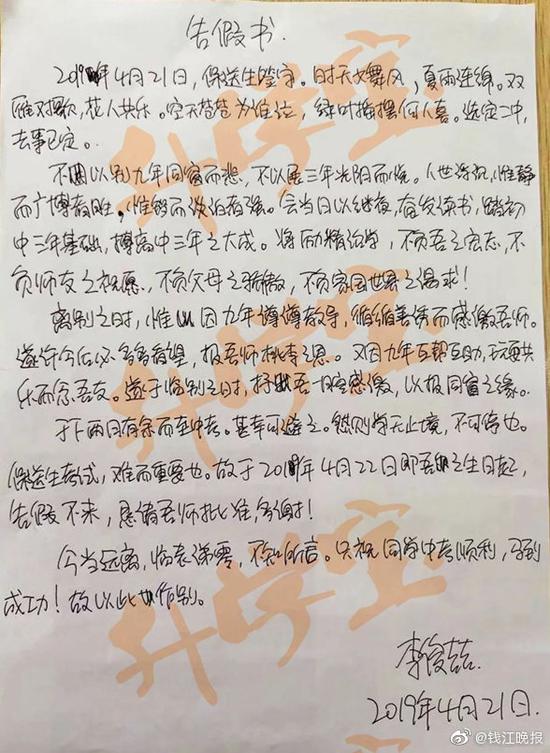 告假书.
2019年4月21日，保送生签字。时天女舞风，夏雨连绵。双
雁对摆歌，花人共乐。空天苍苍为谁泣，绿叶摇摆何人喜。选定二中，
去事已定。
不因以别九年同窗而悲，不以展三年光阴而悦。人世浮沉，惟静
而广博者胜，惟韧而淡泊者强。会当日以继夜，奋发读书，踏初
中三年基础，搏高中三年之大成。将励精治学，不负吾之宏志，不
负师友之祝愿，不负父母之骄傲，不负家国世界之渴求！
离别之时，惟以因九年谆谆教导，循循善诱而感激吾师。
遂许今后必多多看望，报吾师栽培之恩。又因九年互帮互助，玩耍共
乐而念吾友。遂于临别之时，抒我吾一腔感激，以报同窗之缘。
于下两月有余而至中考。甚幸可避之。然则学无止境，不可停也。
保送生考试，难而重要也。故于2019年4月22日即吾之生日起，
告假不来，恳请吾师批准，多谢！
今当远离，临表涕零，不知所言。只祝同学中考顺利，马到
成功！故以此作别。
李俊喆.
2019年4月21日.
升学宝
升学宝
升学宝
升学宝
@钱江晚报